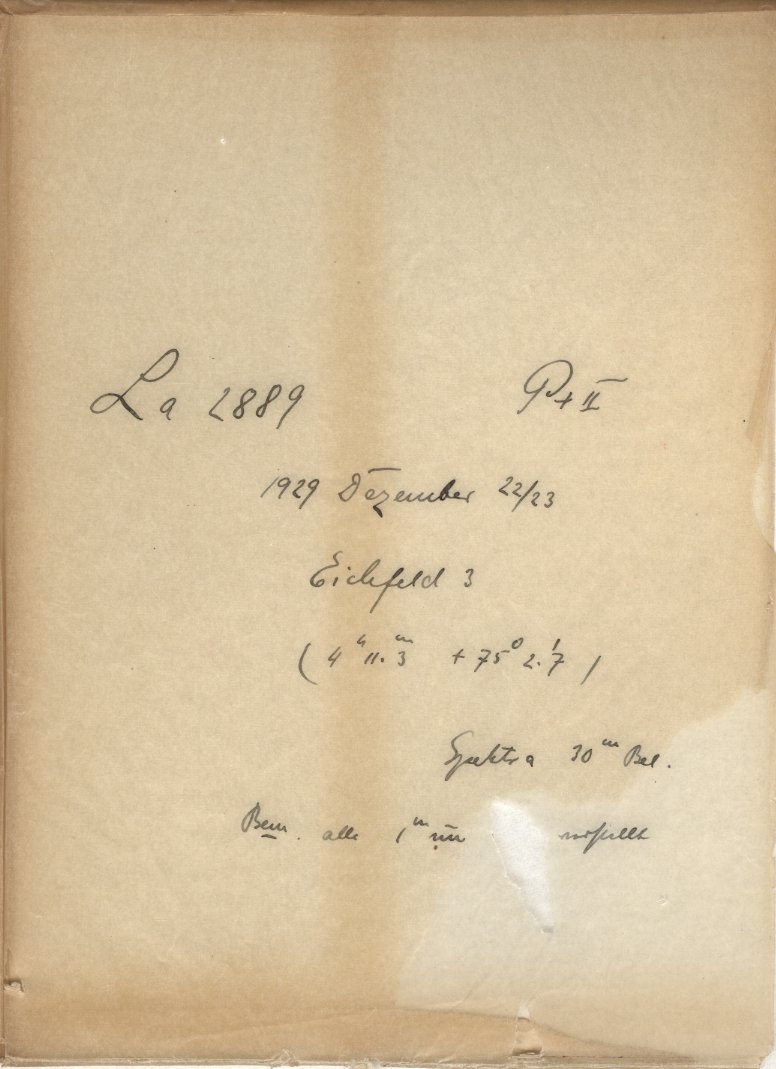 La 2889 P+II
1929 Dezember 22/23
Eichfeld 3
(4ʰ 11.ᵐ3 +75° 2.'7)
Spektra 30ᵐ Bel.
Bem. alle 1ᵐ um verstellt